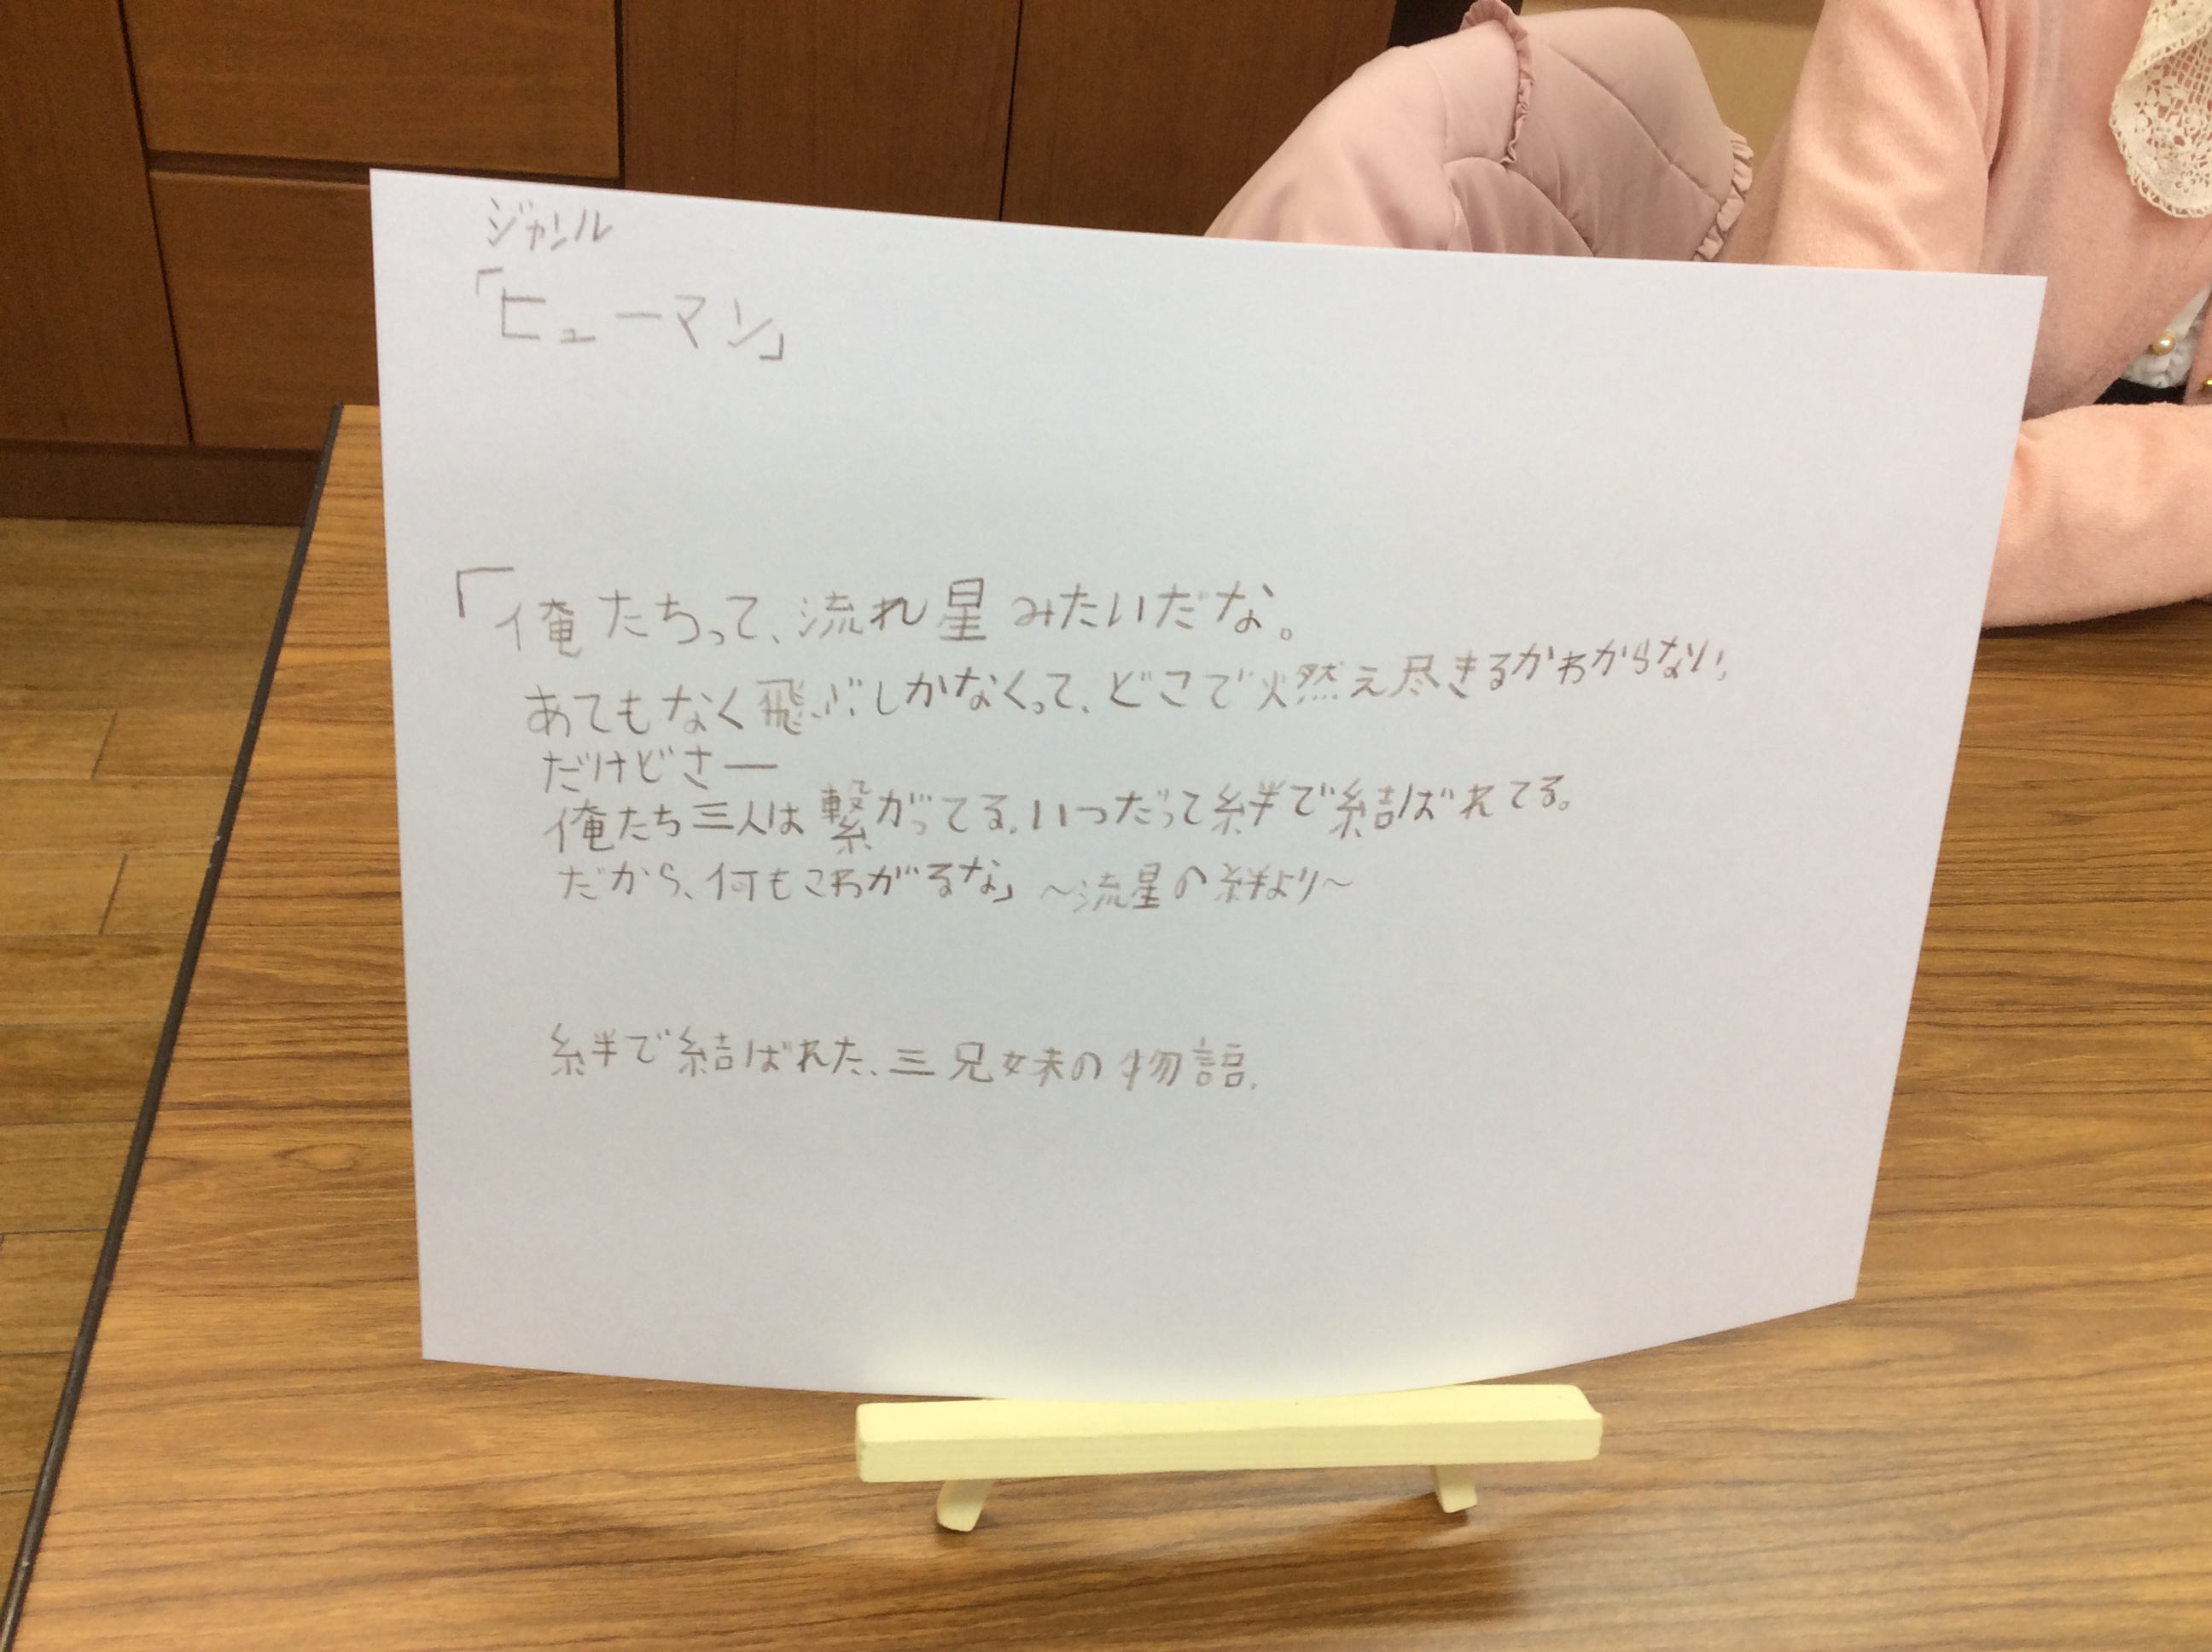 ジャンル
「ヒューマン」
「俺たちって、流れ星みたいだな。
あてもなく飛ぶしかなくって、どこで燃え尽きるかわからない。
だけどさー
俺たち三人は繋がってる。いつだって絆で結ばれてる。
だから、何もこわがるな」～流星の絆より～
絆で結ばれた、三兄妹の物語。